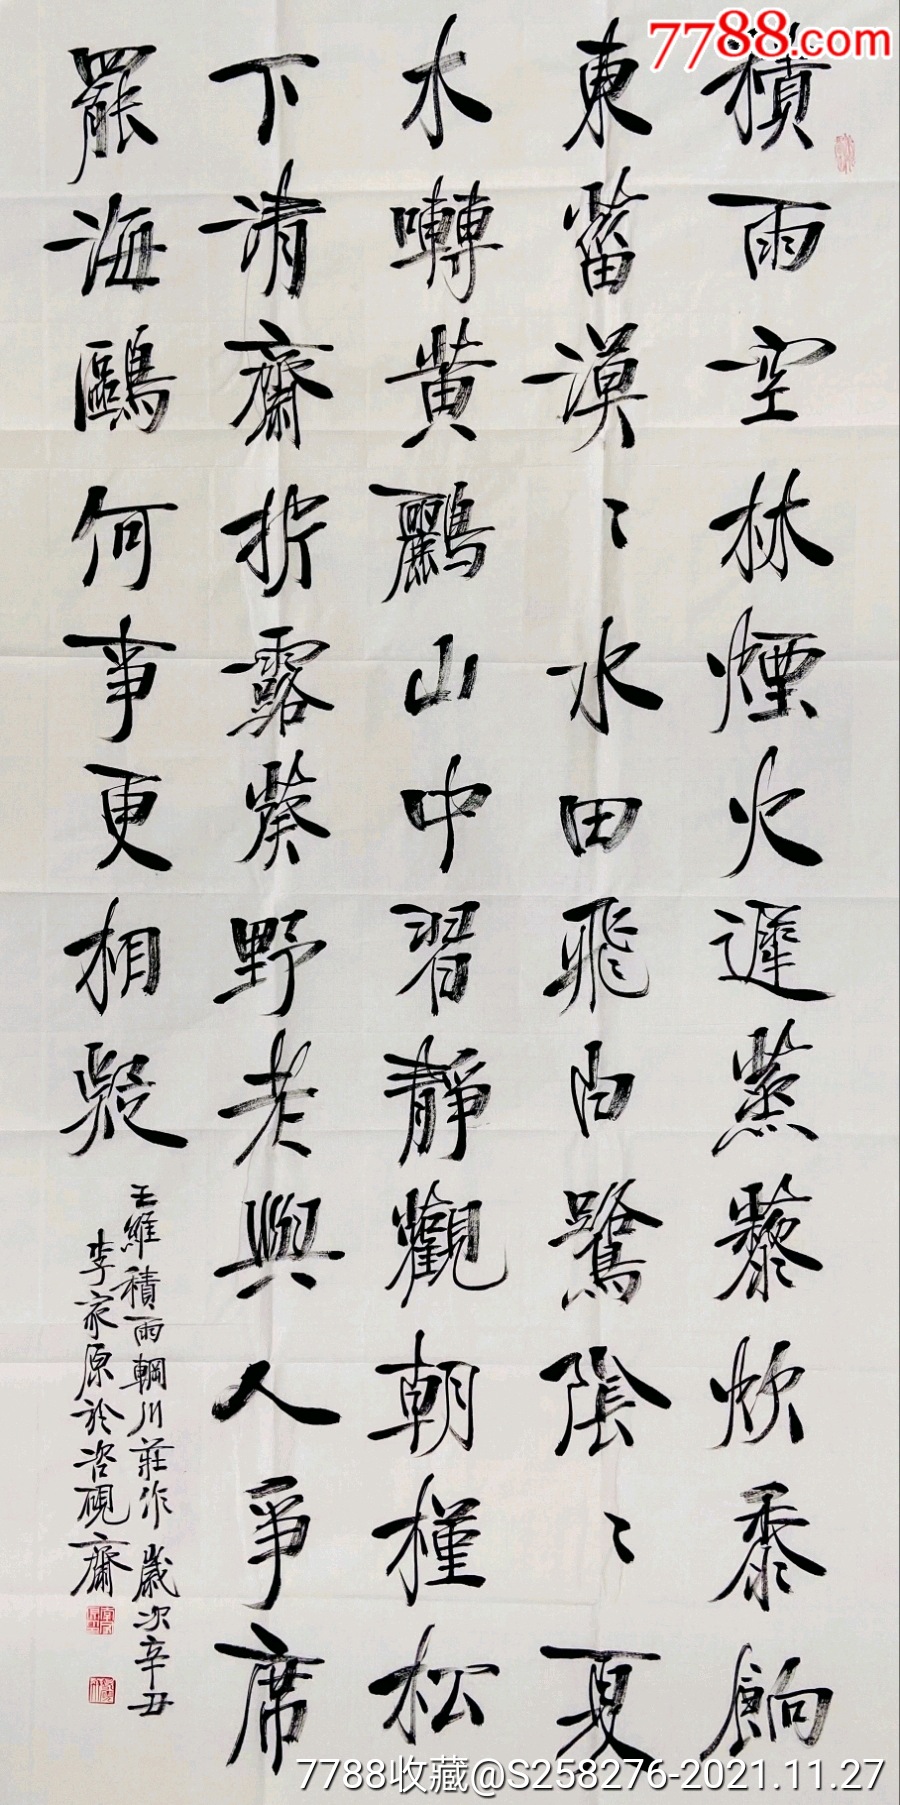 7788.com
積雨空林煙火遲蒸藜炊黍餉
東菑漠〻水田飛白鷺陰〻夏
木囀黃鸝山中習靜觀朝槿松
下清齋折露葵野老與人爭席
罷海鷗何事更相疑
王維積雨輞川莊作 歲次辛丑
李家原於咨硯齋
7788收藏@S258276-2021.11.27